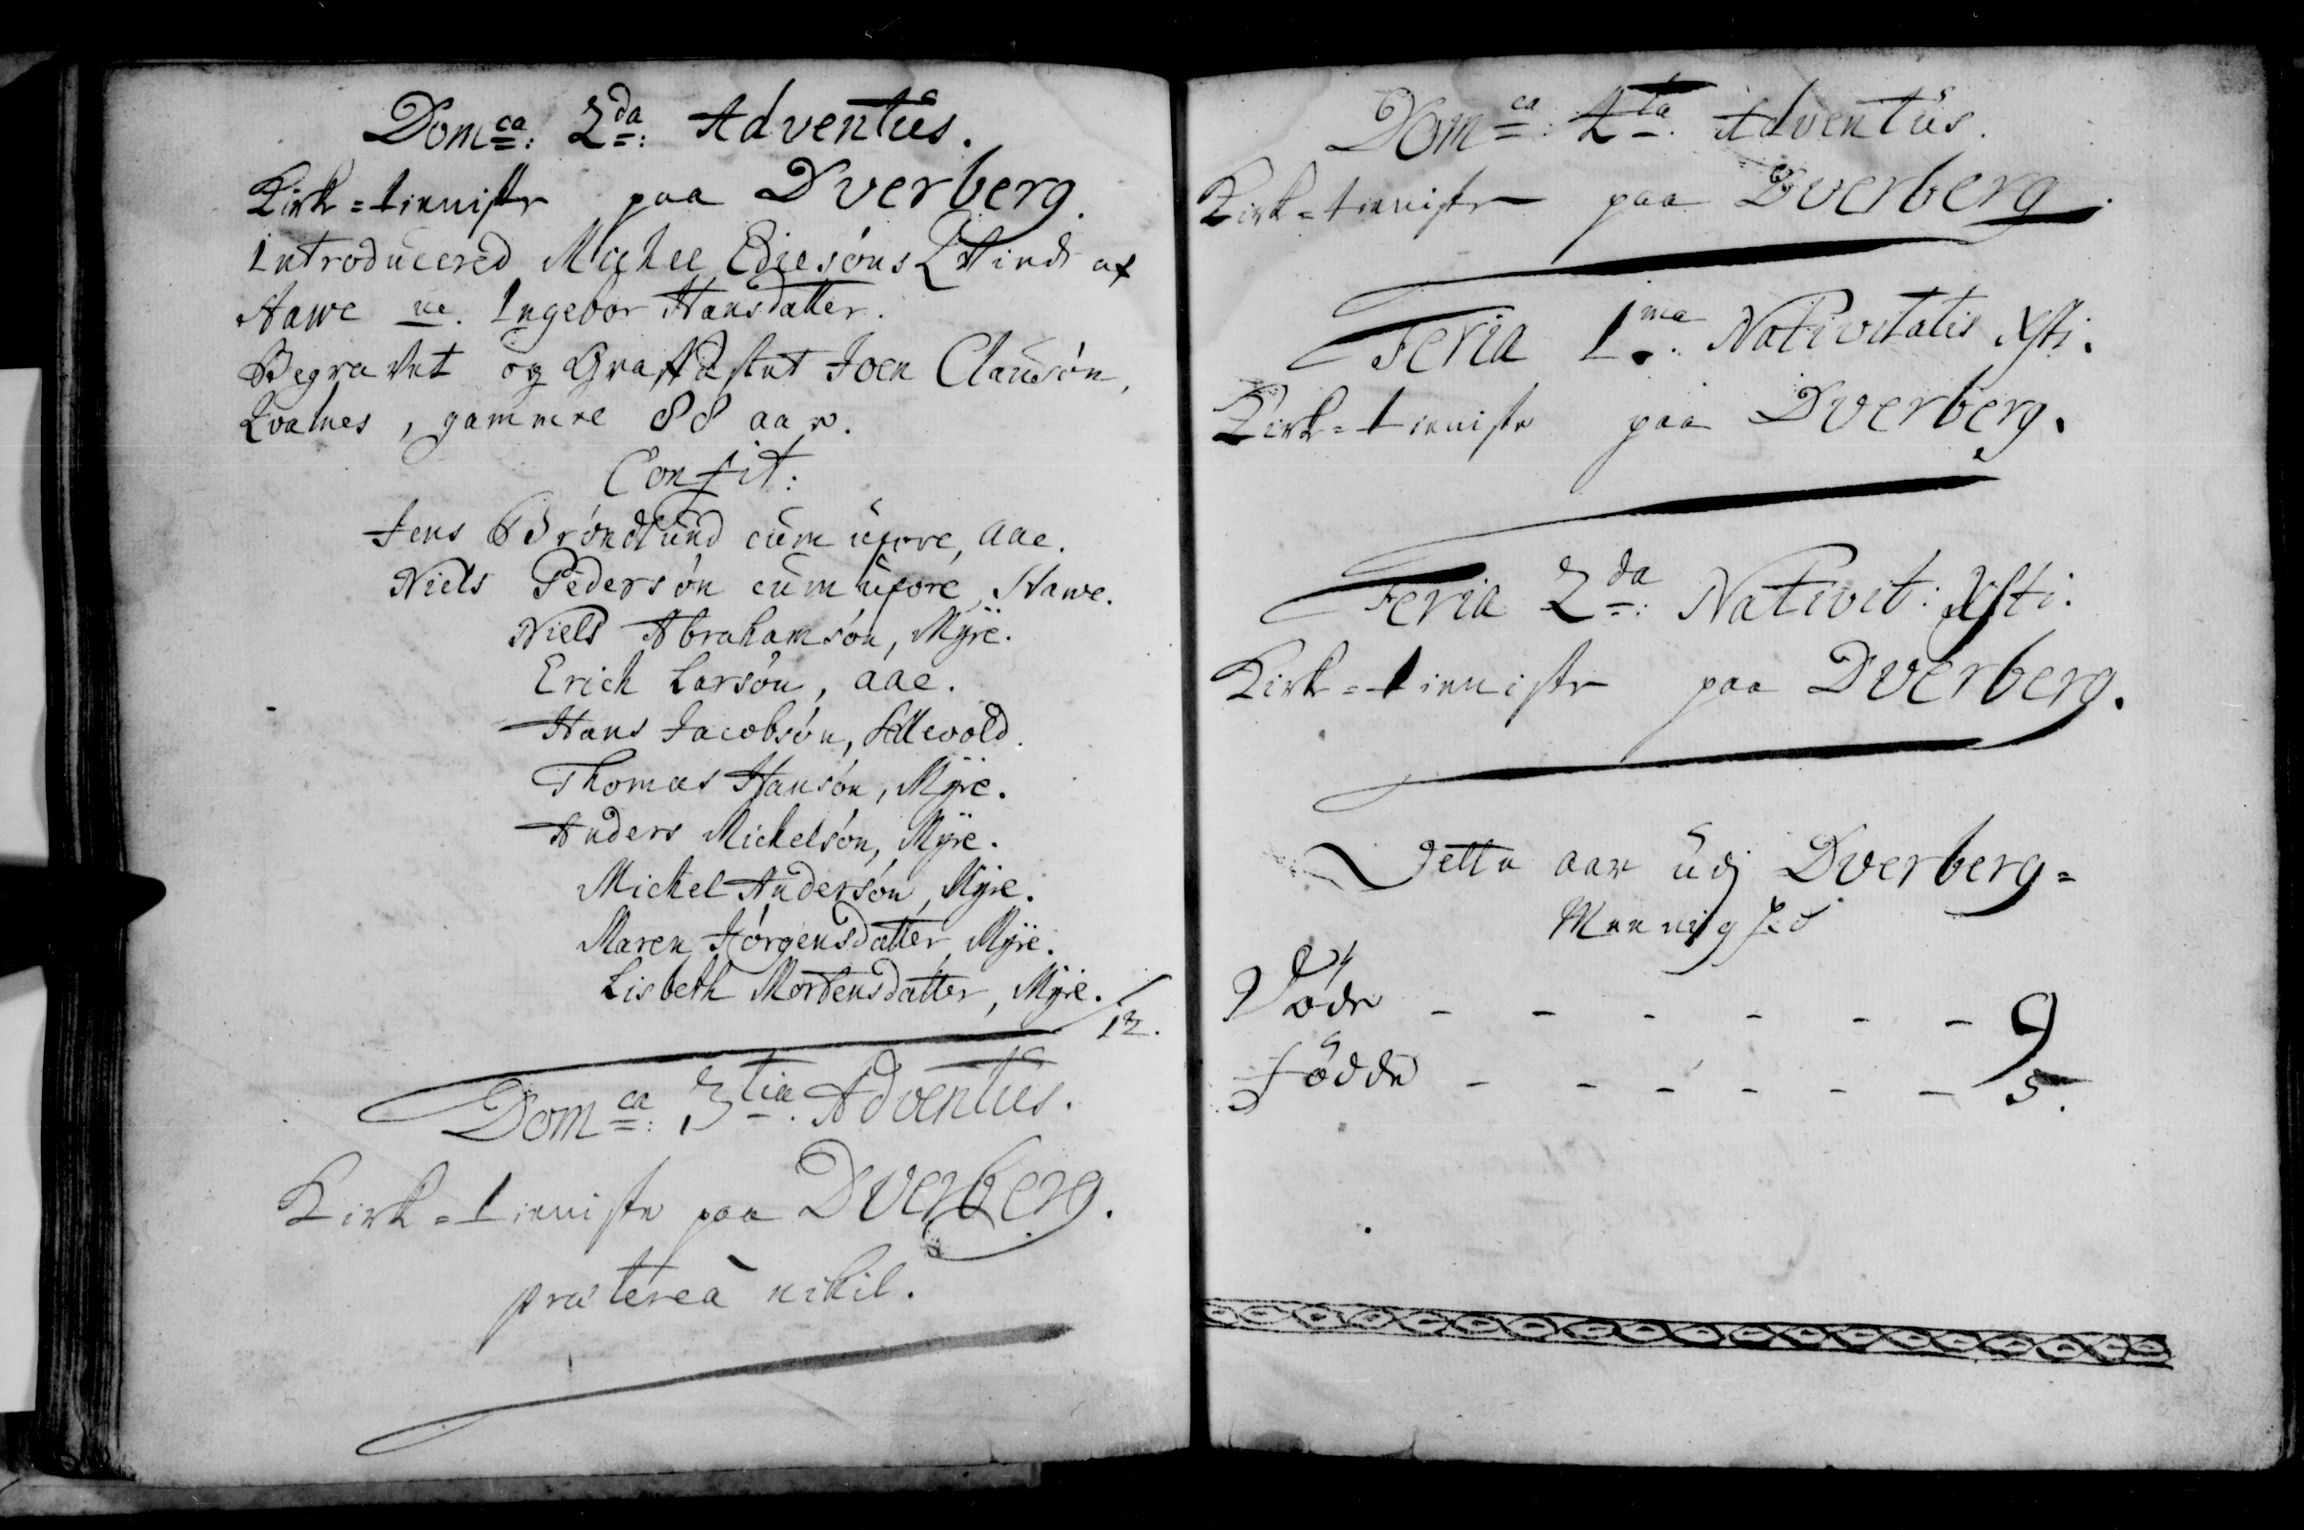 Domca: 2da: Adventus.
Kirke=tieniste paa Dverberg.
Introducered Michel Ediesøns Qvinde af
Hawe ne. Ingebor Hansdatter.
Begravet og Graffæstet Joen Clausøn,
Qvalnes, gammel 88 aar.
Confit:
Jens Brøndlund cum uxore, Aae.
Niels Pedersøn cum uxore, Hawe.
Niels Abrahamsøn, Myre.
Erich Larsøn, Aae.
Hans Jacobsøn, Sellevold.
Thomas Hansøn, Myre.
Anders Mickelsøn, Myre.
Mickel Andersøn, Myre.
Maren Jørgensdatter, Myre.
Lisbeth Mortensdatter, Myre.
12.
Domca: 3tia. Adventus.
Kirke=tieniste paa Dverberg.
præterea nihil.
Domca: 4ta. Adventus.
Kirke=tieniste paa Dverberg.
Feria 1ma. Nativitatis Xsti.
Kirke=tieniste paa Dverberg.
Feria 2da: Nativit: Xsti.
Kirke=tieniste paa Dverberg.
Dette aar udj Dverberg=
Menighed
Døde - - - - - - 9
Fødde - - - - - - 5.